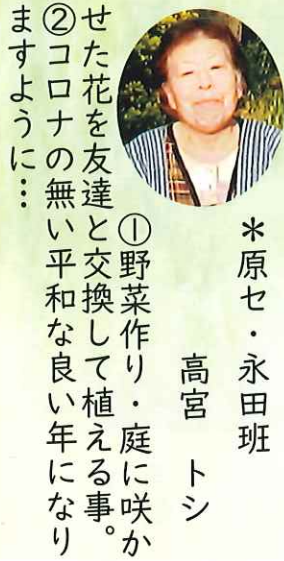 ＊原セ・永田班
高宮　トシ
①野菜作り・庭に咲か
せた花を友達と交換して植える事。
②コロナの無い平和な良い年になり
ますように…